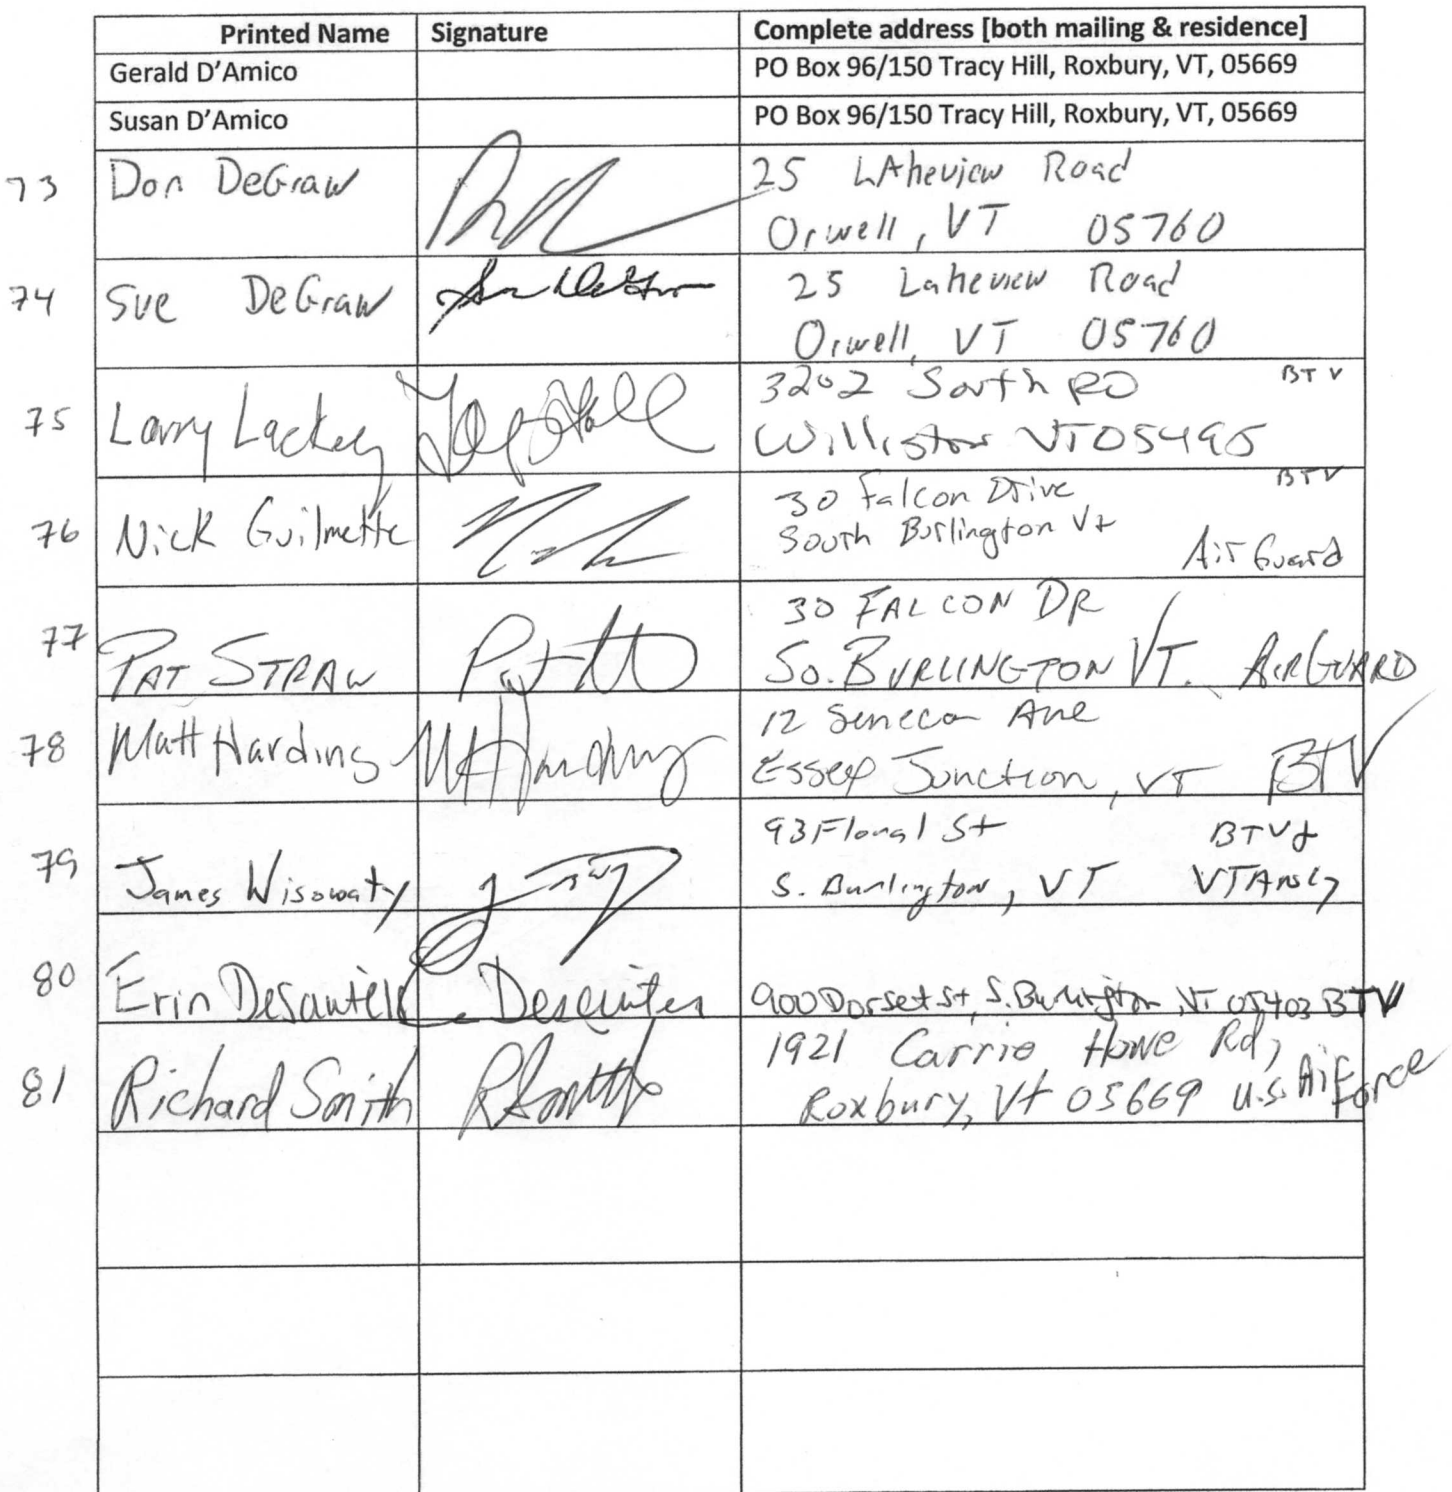 Printed Name Signature Complete address [both mailing & residence]
Gerald D'Amico PO Box 96/150 Tracy Hill, Roxbury, VT, 05669
Susan D'Amico PO Box 96/150 Tracy Hill, Roxbury, VT, 05669
73 Don DeGraw 25 Lakeview Road
Orwell, VT 05760
74 Sue DeGraw 25 Lakeview Road
Orwell, VT 05760
75 Larry Lackey 3202 South RD BTV
Williston VT 05495
76 Nick Guilmette 30 Falcon Drive BTV
South Burlington Vt
Air Guard
77 PAT STRAW 30 FALCON DR
SO. BURLINGTON VT. AIR GUARD
78 Matt Harding M Harding 12 Seneca Ave
Essex Junction, VT BTV
79 James Wisowaty 93 Floral St BTV &
S. Burlington, VT
80 Erin Desautels 900 Dorset St, S. Burlington VT 05403 BTV
81 Richard Smith 1921 Carrie Howe Rd,
Roxbury, Vt 05669 U.S. Air Force